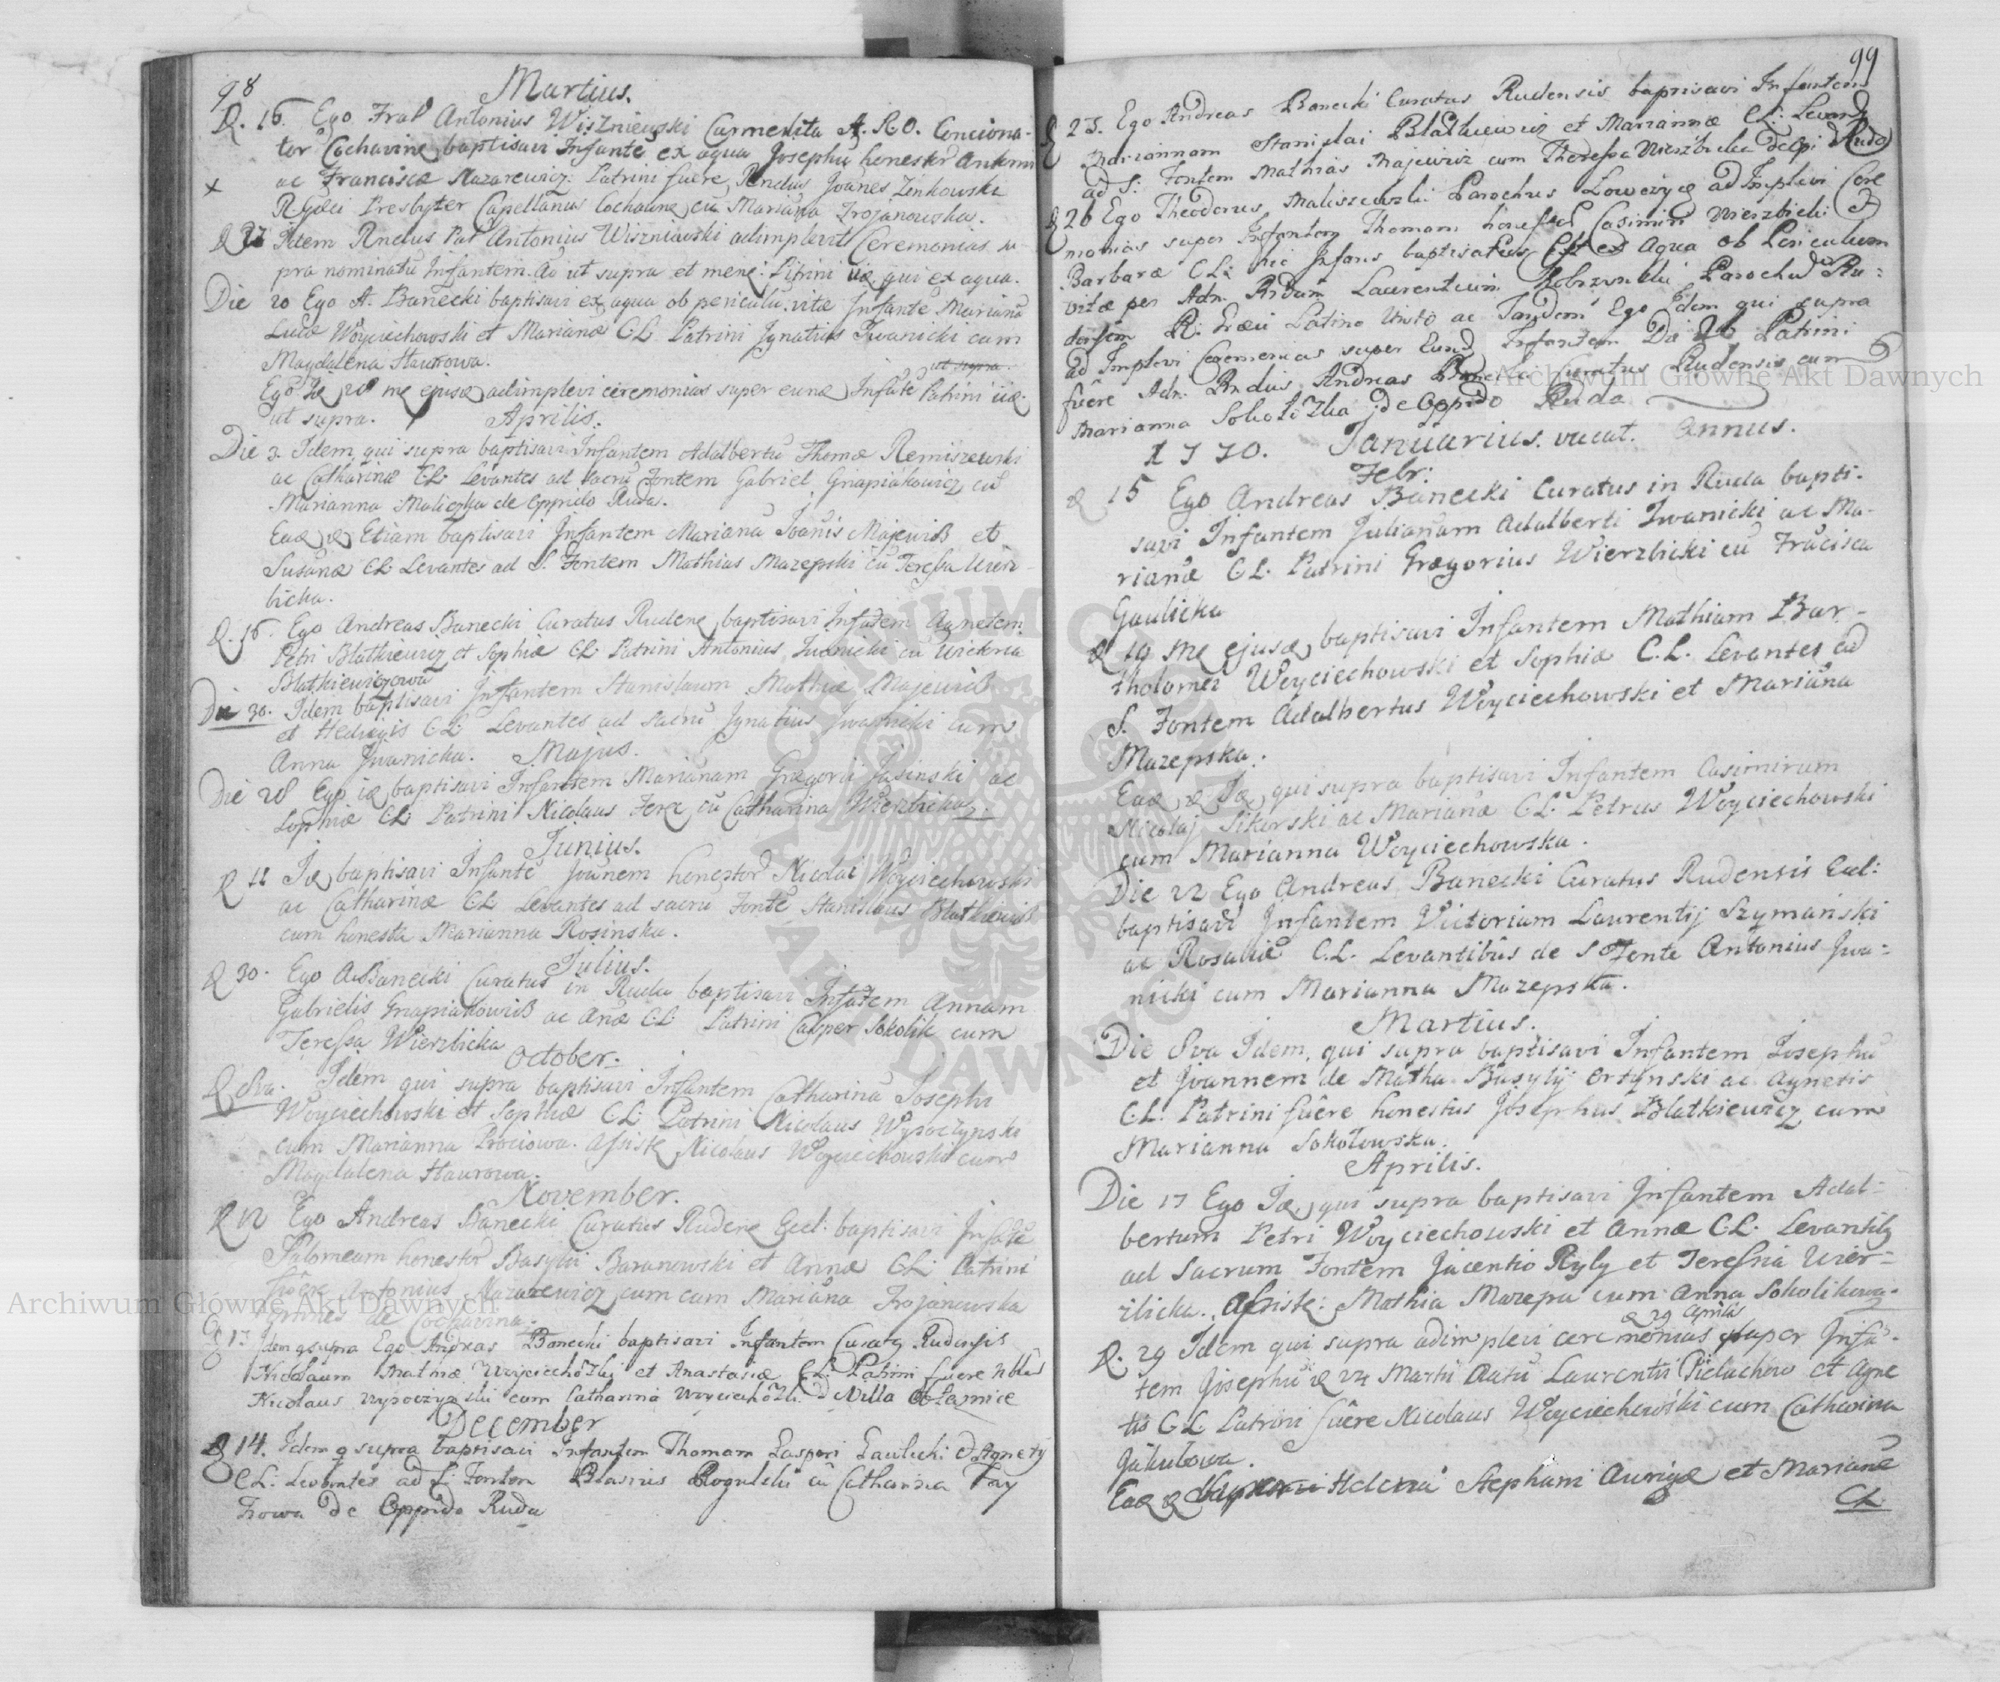 98
Martius.
D. 16. Ego Frat Antonius Wiszniewski Carmelita A. R. O. Conciona-
tor Cochavinę baptisavi Infantē ex aqua Josephū honestor Antonii
ac Franciscæ Nazarewicz. Patrini fuere Rndus Joañes Zinkowski
R Græci Presbyter Capellanus Cochavinę cū Mariana Trojanowska.
Idem Rndus Pat Antonius Wiszniowski adimplevit Ceremonias su-
pra nominatū Infantem. Ao ut supra et mene: Patrini iiæ qui ex aqua.
Die 20 Ego A. Banecki baptisavi ex aqua ob periculū vitæ Infantē Marianā
Lucæ Woyciechowski et Marianæ CL Patrini Ignatius Iwanicki cum
Magdalena Hawrowa.
ut supra.
adimplevi ceremonias super eunđ Infātē Patrini iiæ
ut supra.
Aprilis.
Die 2. Idem qui supra baptisavi Infantem Adalbertū Thomæ Remiszewski
ac Catharinæ CL. Levantes ad sacrū Fontem Gabriel Gnapiakowicz cū
Marianna Maliczka de Oppido Ruda.
Eađ đ Etiam baptisavi Infantem Marianā Joānis Majewiß et
Susanæ CL Levantes ad S. Fontem Mathias Mazepski cū Teressa Wierz-
bicka.
D. 16. Ego Andreas Banecki Curatus Rudenę baptisavi Infātem Agnetem
Petri Blatkiewicz et Sophiæ CL Patrini Antonius Iwanicki cū Wictoria
Blatkiewiczowa
Die 30. Idem baptisavi Infantem Stanislaum Mathiæ Majewiß
et Hedvigis CL Levantes ad sacrū Ignatius Iwanicki cum
Anna Iwanicka. Majus.
Die 28 Ego iđ baptisavi Infantem Marianam Gregorii Jasinski ac
Sophiæ CL. Patrini Nicolaus Ferę cū Catharina Wierzbicka.
Junius.
Iđ baptisavi Infantē Joānem honestor Nicolai Woyciechowski
ac Catharinæ CL Levantes ad sacrū Fontē Stanislaus Blatkiewiß
cum honesta Marianna Rosinska.
Julius.
D 30. Ego A Banecki Curatus in Ruda baptisavi Infātem Annam
Gabrielis Gnapiakowiß ac Anæ CL Patrini Casper Sokolik cum
Teressa Wierzbicka
October.
D 8va. Idem qui supra baptisavi Infantem Catharinā Josephi
Woyciechowski et Sophiæ CL. Patrini Nicolaus Wypoczynski
cum Marianna Prociowa. Assistę Nicolaus Woyciechowski cum
Magdalena Hawrowa.
November.
D 12 Ego Andreas Banecki Curatus Rudenę Eccl. baptisavi Infātē
Salomeam honestor Basylii Baranowski et Annæ CL. Patrini
fuēre Antonius Nazarewicz cum cum Mariāna Trojanowska
omnes de Cochavina.
D 13 Idem q supra Ego Andreas Banecki baptisavi Infantem Curatę Rudensis
Nicolaum Mathiæ Woyciechowski et Anastasiæ CL. Patrini fuere
Nicolaus Wypoczynski cum Catharina de Villa
December
D 14. Idem q supra baptisavi Infantem Thomam Gaspari Gaulicki et Agnetis
CL. Levantes ad S. Fonten Blasius Rogulski cū Catharina Hay
Frowa de Oppido Ruda
99
D 23. Ego Andreas Banecki Curatus Rudensis baptisavi Infantem
Mariannam Stanislai Blatkiewicz et Mariannæ CL. Levand
ad S. Fontem Mathias Majewicz cum Theressa Wierzbicka de Opi Ruda
D 26 Ego Theodorus Maliszewski Parochus Lowczycę ad Implevi Cere
monias super Infantem Thomam honestor Casimiri Wierzbicki et
Barbaræ CL. hic Infans baptisatus Est ex Aqua ob Periculum
vitæ per Adm Rndum Laurentium Dobrzynski Parochū Ru-
densem R. Græci Latino Unito ac Tandem Ego Idem qui supra
ad Implevi Ceremonias super Eund Infantem Die 26 Patrini
fuēre Adm. Rndus Andreas Banecki Curatus Rudensis cum
Marianna de Oppido Ruda
1770. Januarius. vacat. Annus.
Febr:
D 15 Ego Andreas Banecki Curatus in Ruda bapti-
savi Infantem Julianam Adalberti Iwanicki ac Ma-
rianæ CL. Patrini Gregorius Wierzbicki cū Frācisca
Gaulicka
D 19 Mę ejusđ baptisavi Infantem Mathiam Bar-
tholomei Woyciechowski et Sophiæ C.L. Levantes ad
S. Fontem Adalbertus Woyciechowski et Mariāna
Mazepska.
Eađ đ Iđ qui supra baptisavi Infantem Casimirum
Nicolaj Sikorski ac Marianæ CL. Petrus Woyciechowski
cum Marianna Woyciechowska.
Die 22 Ego Andreas Banecki Curatus Rudensis Eccl:
baptisavi Infantem Victoriam Laurentij Szymański
ac Rosaliæ C.L. Levantibūs de S Fonte Antonius Iwa-
nicki cum Marianna Mazepska.
Martius.
Die 8va Idem, qui supra baptisavi Infantem Josephū
et Joannem de Matha Basylij Ortynski ac Agnetis
CL. Patrini fuēre honestus Josephus Blatkiewicz cum
Marianna Sokołowska.
Aprilis.
Die 17 Ego Iđ, qui supra baptisavi Infantem Adal-
bertum Petri Woyciechowski et Annæ C.L. Levantibꝫ
ad Sacrum Fontem Jacentio Ryly et Teressia Wier-
zbicka. Assistę: Mathia Mazepa cum Anna Sokolikowa.
D 29 Aprilis
D. 29 Idem qui supra adimplevi ceremonias super Infā-
tem Josephū đ 24 Martii Natū Laurentii Pieluchow et Agne
tis C.L. Patrini fuēre Nicolaus Woyciechowski cum Catharina
Jakubowa.
Eađ đ baptisavi Helenā Stephani Aurigæ et Marianæ
CL.
Archiwum Główne Akt Dawnych
Archiwum Główne Akt Dawnych
ARCHIWUM GŁÓWNE AKT DAWNYCH